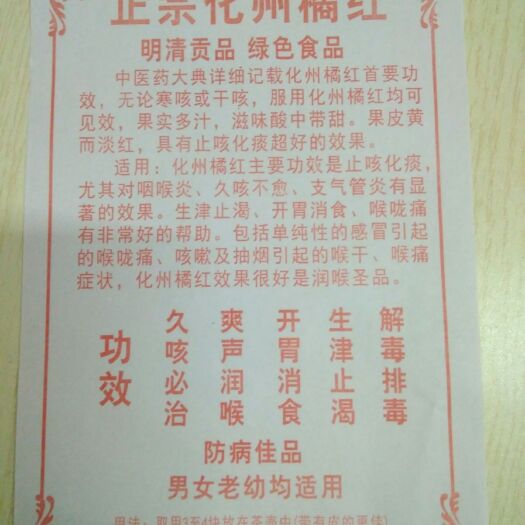 正宗化州橘红
明清贡品 绿色食品
中医药大典详细记载化州橘红首要功
效，无论寒咳或干咳，服用化州橘红均可
见效，果实多汁，滋味酸中带甜。果皮黄
而淡红，具有止咳化痰超好的效果。
适用：化州橘红主要功效是止咳化痰，
尤其对咽喉炎、久咳不愈、支气管炎有显
著的效果。生津止渴、开胃消食、喉咙痛
有非常好的帮助。包括单纯性的感冒引起
的喉咙痛、咳嗽及抽烟引起的喉干、喉痛
症状，化州橘红效果很好是润喉圣品。
功效
久咳必治
爽声润喉
开胃消食
生津止渴
解毒排毒
防病佳品
男女老幼均适用
用法：取用3至4块放在茶壶中(带有皮的更佳)